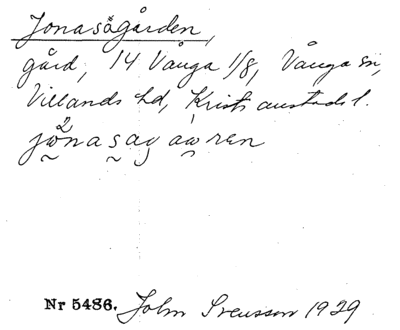 Jonasagården,
gård, 14 Vånga 1/8, Vånga sn,
Villands hd, Kristianstads l.
Nr 5486. John Svensson 1929